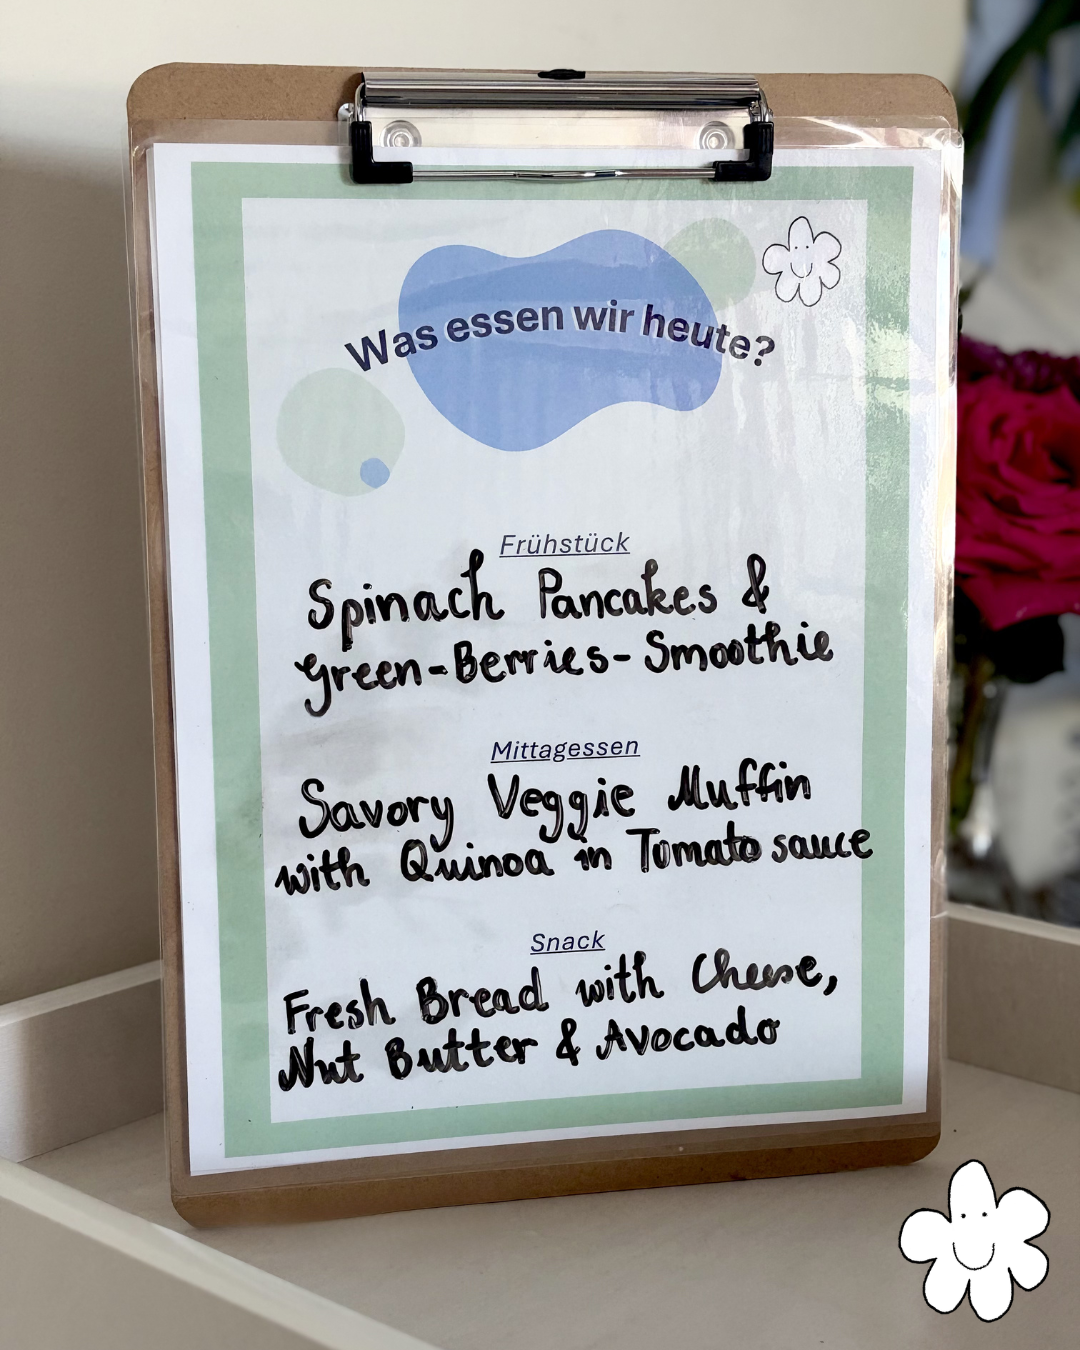 Was essen wir heute?
Frühstück
Spinach Pancakes &
Green-Berries-Smoothie
Mittagessen
Savory Veggie Muffin
with Quinoa in Tomato sauce
Snack
Fresh Bread with Cheese,
Nut Butter & Avocado